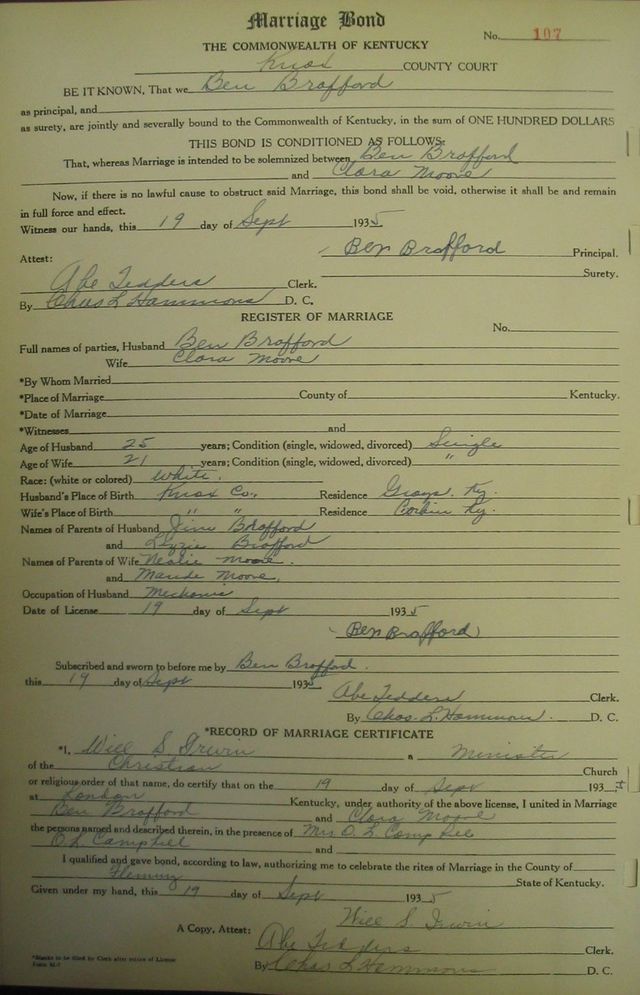 Marriage Bond
No. 107
THE COMMONWEALTH OF KENTUCKY
Knox COUNTY COURT
BE IT KNOWN, That we Ben Brafford
as principal, and
as surety, are jointly and severally bound to the Commonwealth of Kentucky, in the sum of ONE HUNDRED DOLLARS
THIS BOND IS CONDITIONED AS FOLLOWS:
That, whereas Marriage is intended to be solemnized between Ben Brafford
and Clara Moore
Now, if there is no lawful cause to obstruct said Marriage, this bond shall be void, otherwise it shall be and remain
in full force and effect.
Witness our hands, this 19 day of Sept 1935
Ben Brafford Principal.
Attest: Surety.
Abe Tedders Clerk.
By Chas L Hammons D. C.
REGISTER OF MARRIAGE
No.
Full names of parties, Husband Ben Brafford
Wife Clara Moore
*By Whom Married
*Place of Marriage County of Kentucky.
*Date of Marriage
*Witnesses and
Age of Husband 25 years; Condition (single, widowed, divorced) Single
Age of Wife 21 years; Condition (single, widowed, divorced) "
Race: (white or colored) White.
Husband's Place of Birth Knox Co., Residence Grays. Ky.
Wife's Place of Birth " " Residence Corbin Ky.
Names of Parents of Husband Jim Brafford
and Lizzie Brafford
Names of Parents of Wife Moore.
and Maude Moore.
Occupation of Husband Mechanic
Date of License 19 day of Sept 1935
Ben Brafford
Subscribed and sworn to before me by Ben Brafford.
this 19 day of Sept 1935
Abe Tedders Clerk.
By Chas. L. Hammons. D. C.
*RECORD OF MARRIAGE CERTIFICATE
*I, Will S Irwin a Minister
of the Christian Church
or religious order of that name, do certify that on the 19 day of Sept 1935
at London Kentucky, under authority of the above license, I united in Marriage
Ben Brafford and Clara Moore
the persons named and described therein, in the presence of Mrs O. L Campbell
O. L. Campbell and
I qualified and gave bond, according to law, authorizing me to celebrate the rites of Marriage in the County of
Fleming State of Kentucky.
Given under my hand, this 19 day of Sept 1935
Will S. Irwin
A Copy, Attest: Abe Tedders Clerk.
By Chas L Hammons D. C.
*Blanks to be filled by Clerk after return of License